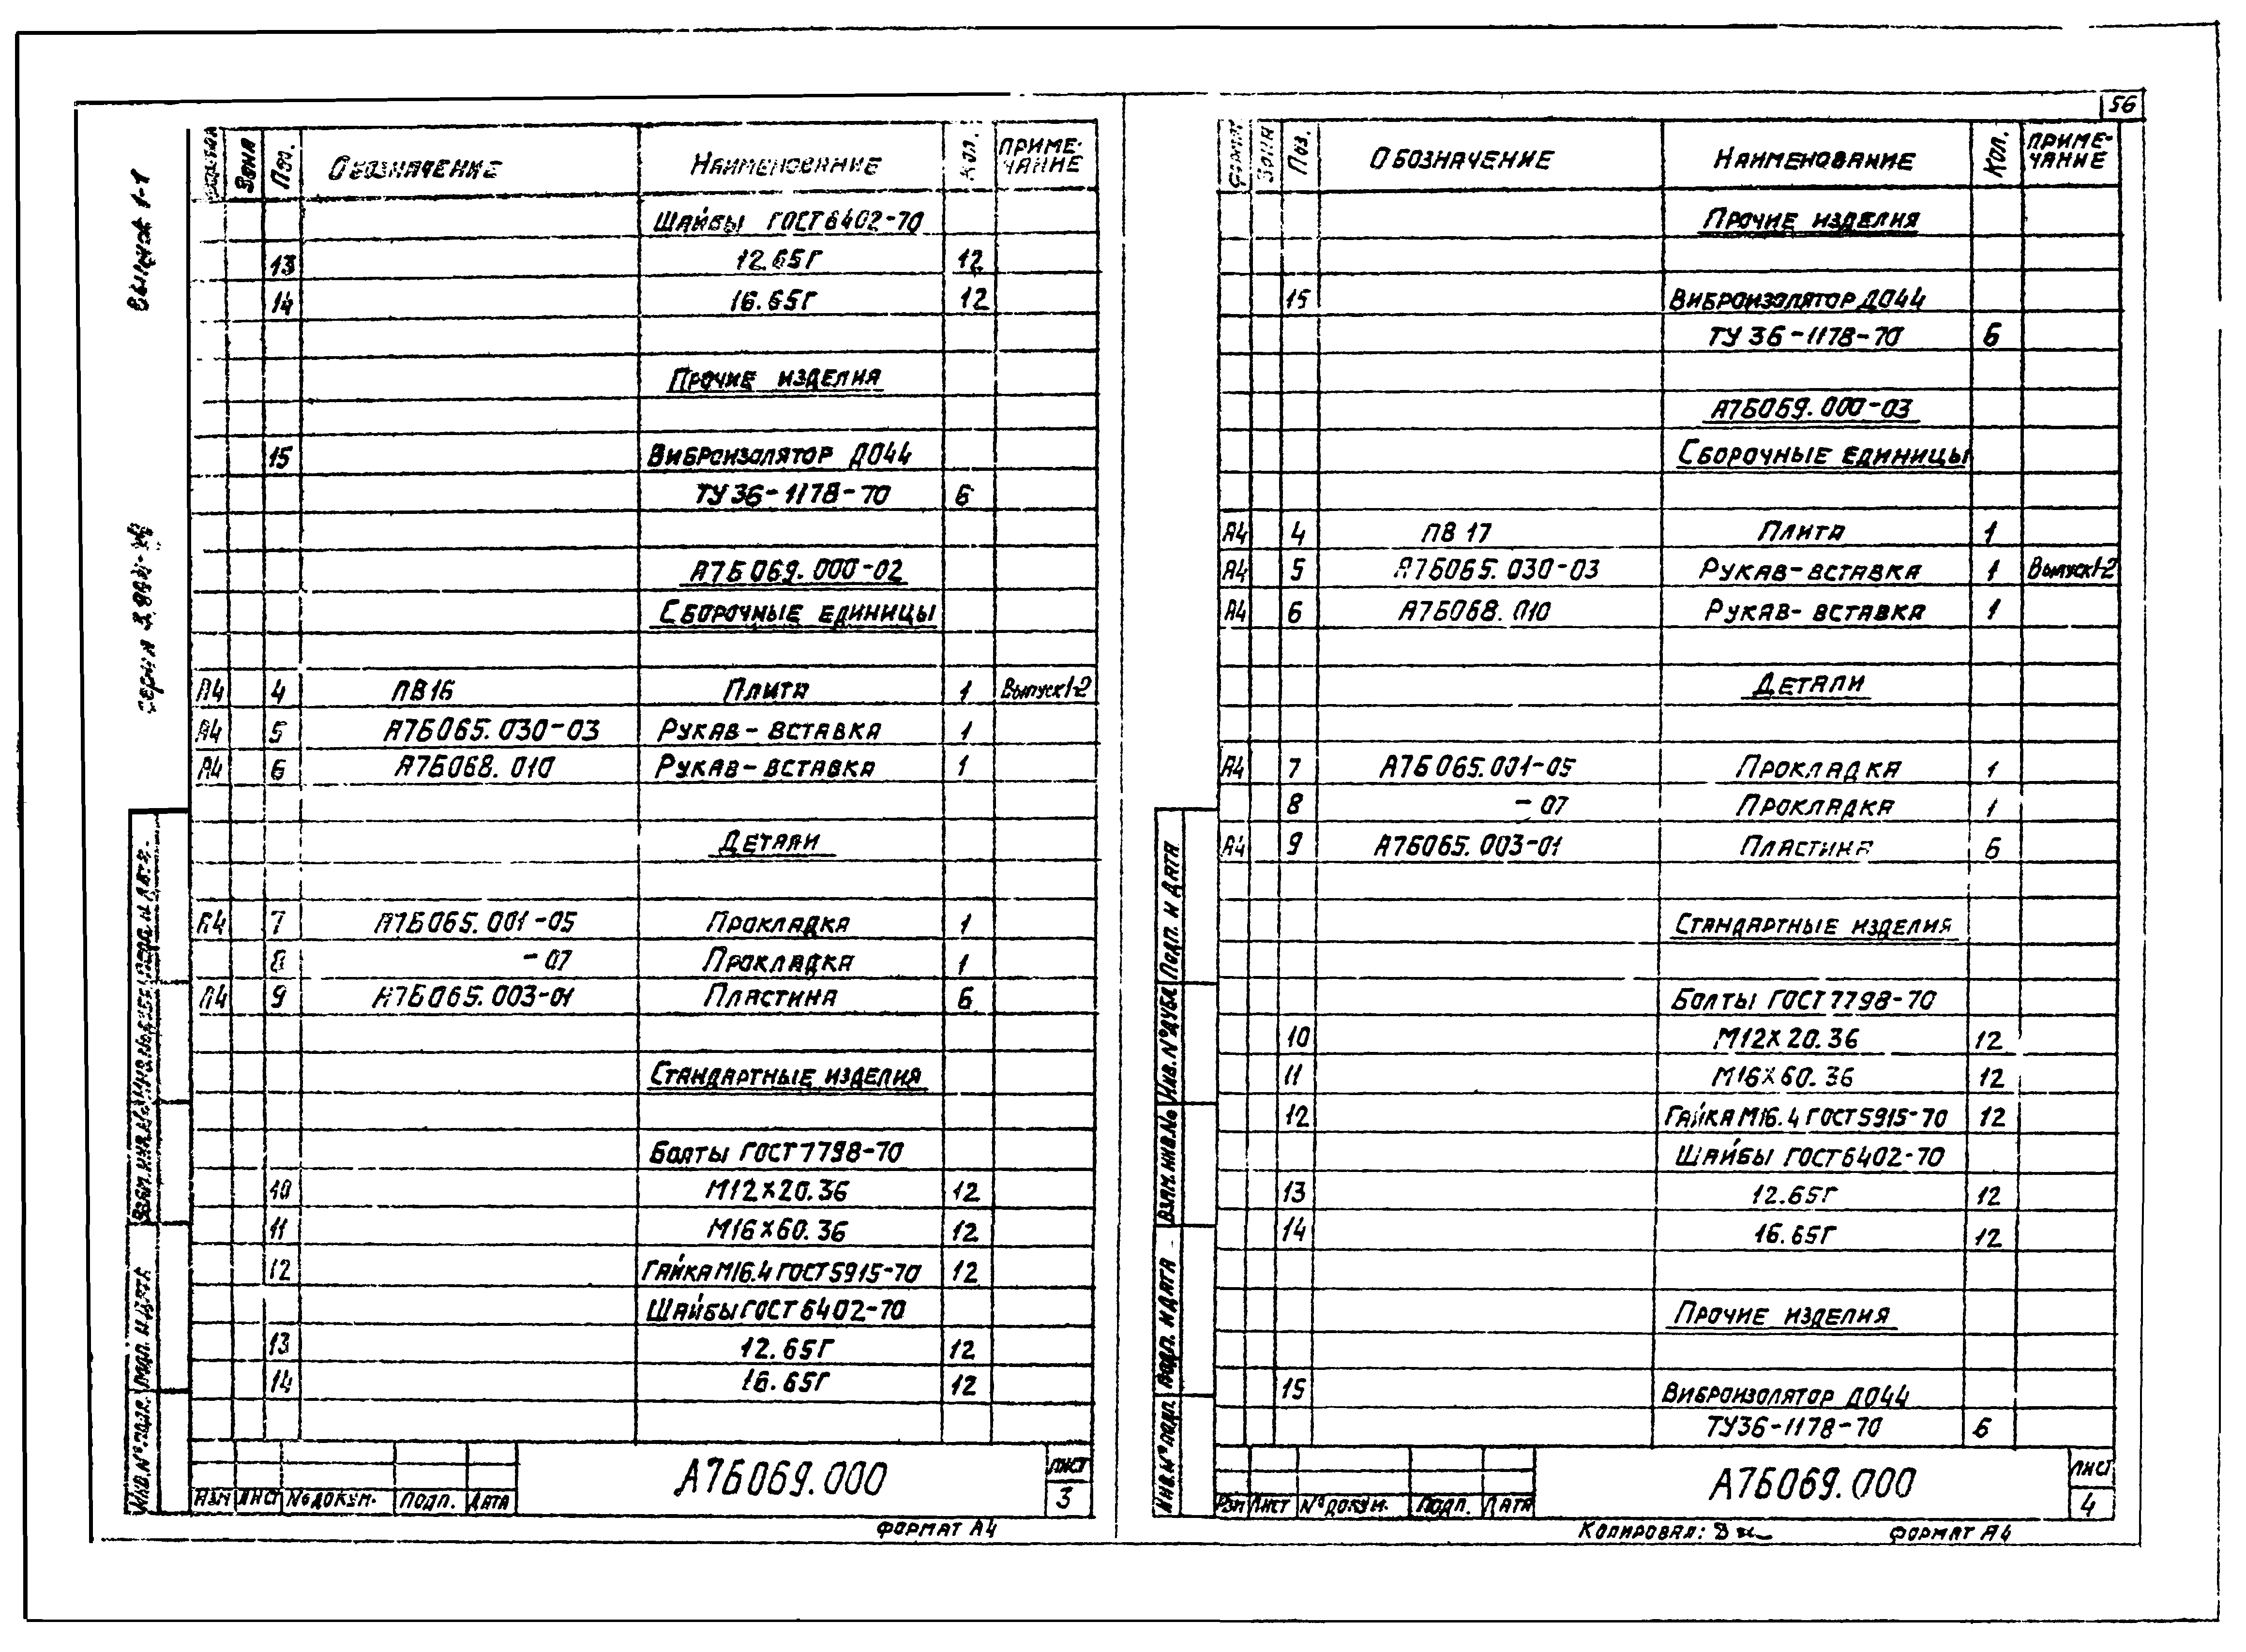 56
Выпуск 1-1
Зона Поз. Обозначение Наименование Кол. Приме-
чание
Шайбы ГОСТ 6402-70
13 12.65Г 12
14 16.65Г 12
Прочие изделия
15 Виброизолятор ДО44
ТУ 36-1178-70 6
А7Б069.000-02
Сборочные единицы
А4 4 ПВ16 Плита 1 Выпуск 1-2
А4 5 А7Б065.030-03 Рукав-вставка 1
А4 6 А7Б068.010 Рукав-вставка 1
Детали
А4 7 А7Б065.001-05 Прокладка 1
8 -07 Прокладка 1
А4 9 А7Б065.003-01 Пластина 6
Стандартные изделия
Болты ГОСТ 7798-70
10 М12х20.36 12
11 М16х60.36 12
12 Гайка М16.4 ГОСТ 5915-70 12
Шайбы ГОСТ 6402-70
13 12.65Г 12
14 16.65Г 12
Инв.№ подл. Подп. и дата Взам.инв.№
Изм Лист № докум. Подп. Дата
А7Б069.000
Лист
3
Формат А4
Формат Зона Поз. Обозначение Наименование Кол. Приме-
чание
Прочие изделия
15 Виброизолятор ДО44
ТУ 36-1178-70 6
А7Б069.000-03
Сборочные единицы
А4 4 ПВ 17 Плита 1
А4 5 А7Б065.030-03 Рукав-вставка 1 Выпуск 1-2
А4 6 А7Б068.010 Рукав-вставка 1
Детали
А4 7 А7Б065.001-05 Прокладка 1
8 -07 Прокладка 1
А4 9 А7Б065.003-01 Пластина 6
Стандартные изделия
Болты ГОСТ 7798-70
10 М12х20.36 12
11 М16х60.36 12
12 Гайка М16.4 ГОСТ 5915-70 12
Шайбы ГОСТ 6402-70
13 12.65Г 12
14 16.65Г 12
Прочие изделия
15 Виброизолятор ДО44
ТУ36-1178-70 6
Инв.№ подл. Подп. и дата Взам.инв.№ Инв.№ дубл. Подп. и дата
Изм Лист № докум. Подп. Дата
А7Б069.000
Лист
4
Копировал: Формат А4